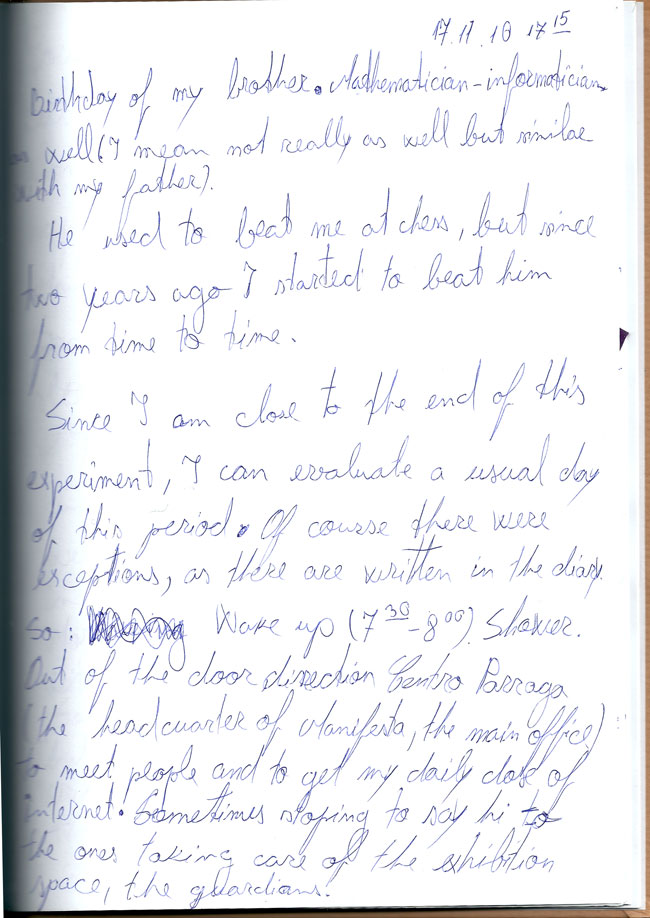 17.11.10 17 15
Birthday of my brother. Mathematician-informatician
as well (I mean not really as well but similar
with my father).
He used to beat me at chess, but since
two years ago I started to beat him
from time to time.
Since I am close to the end of this
experiment, I can evaluate a usual day
of this period. Of course there were
exceptions, as there are written in the diary.
So: Wake up (7 30 - 8 00). Shower.
Out of the door, direction Centro Parraga
(the headcuarter of Manifesta, the main office)
to meet people and to get my daily dose of
internet. Sometimes stoping to say hi to
the ones taking care of the exhibition
space, the guardians.